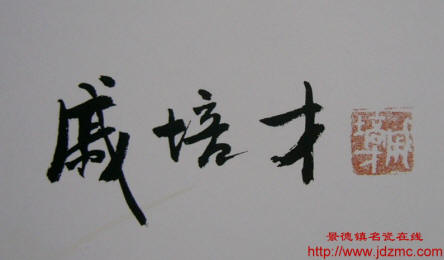 戚培才
景德镇名瓷在线
http://www.jdzmc.com